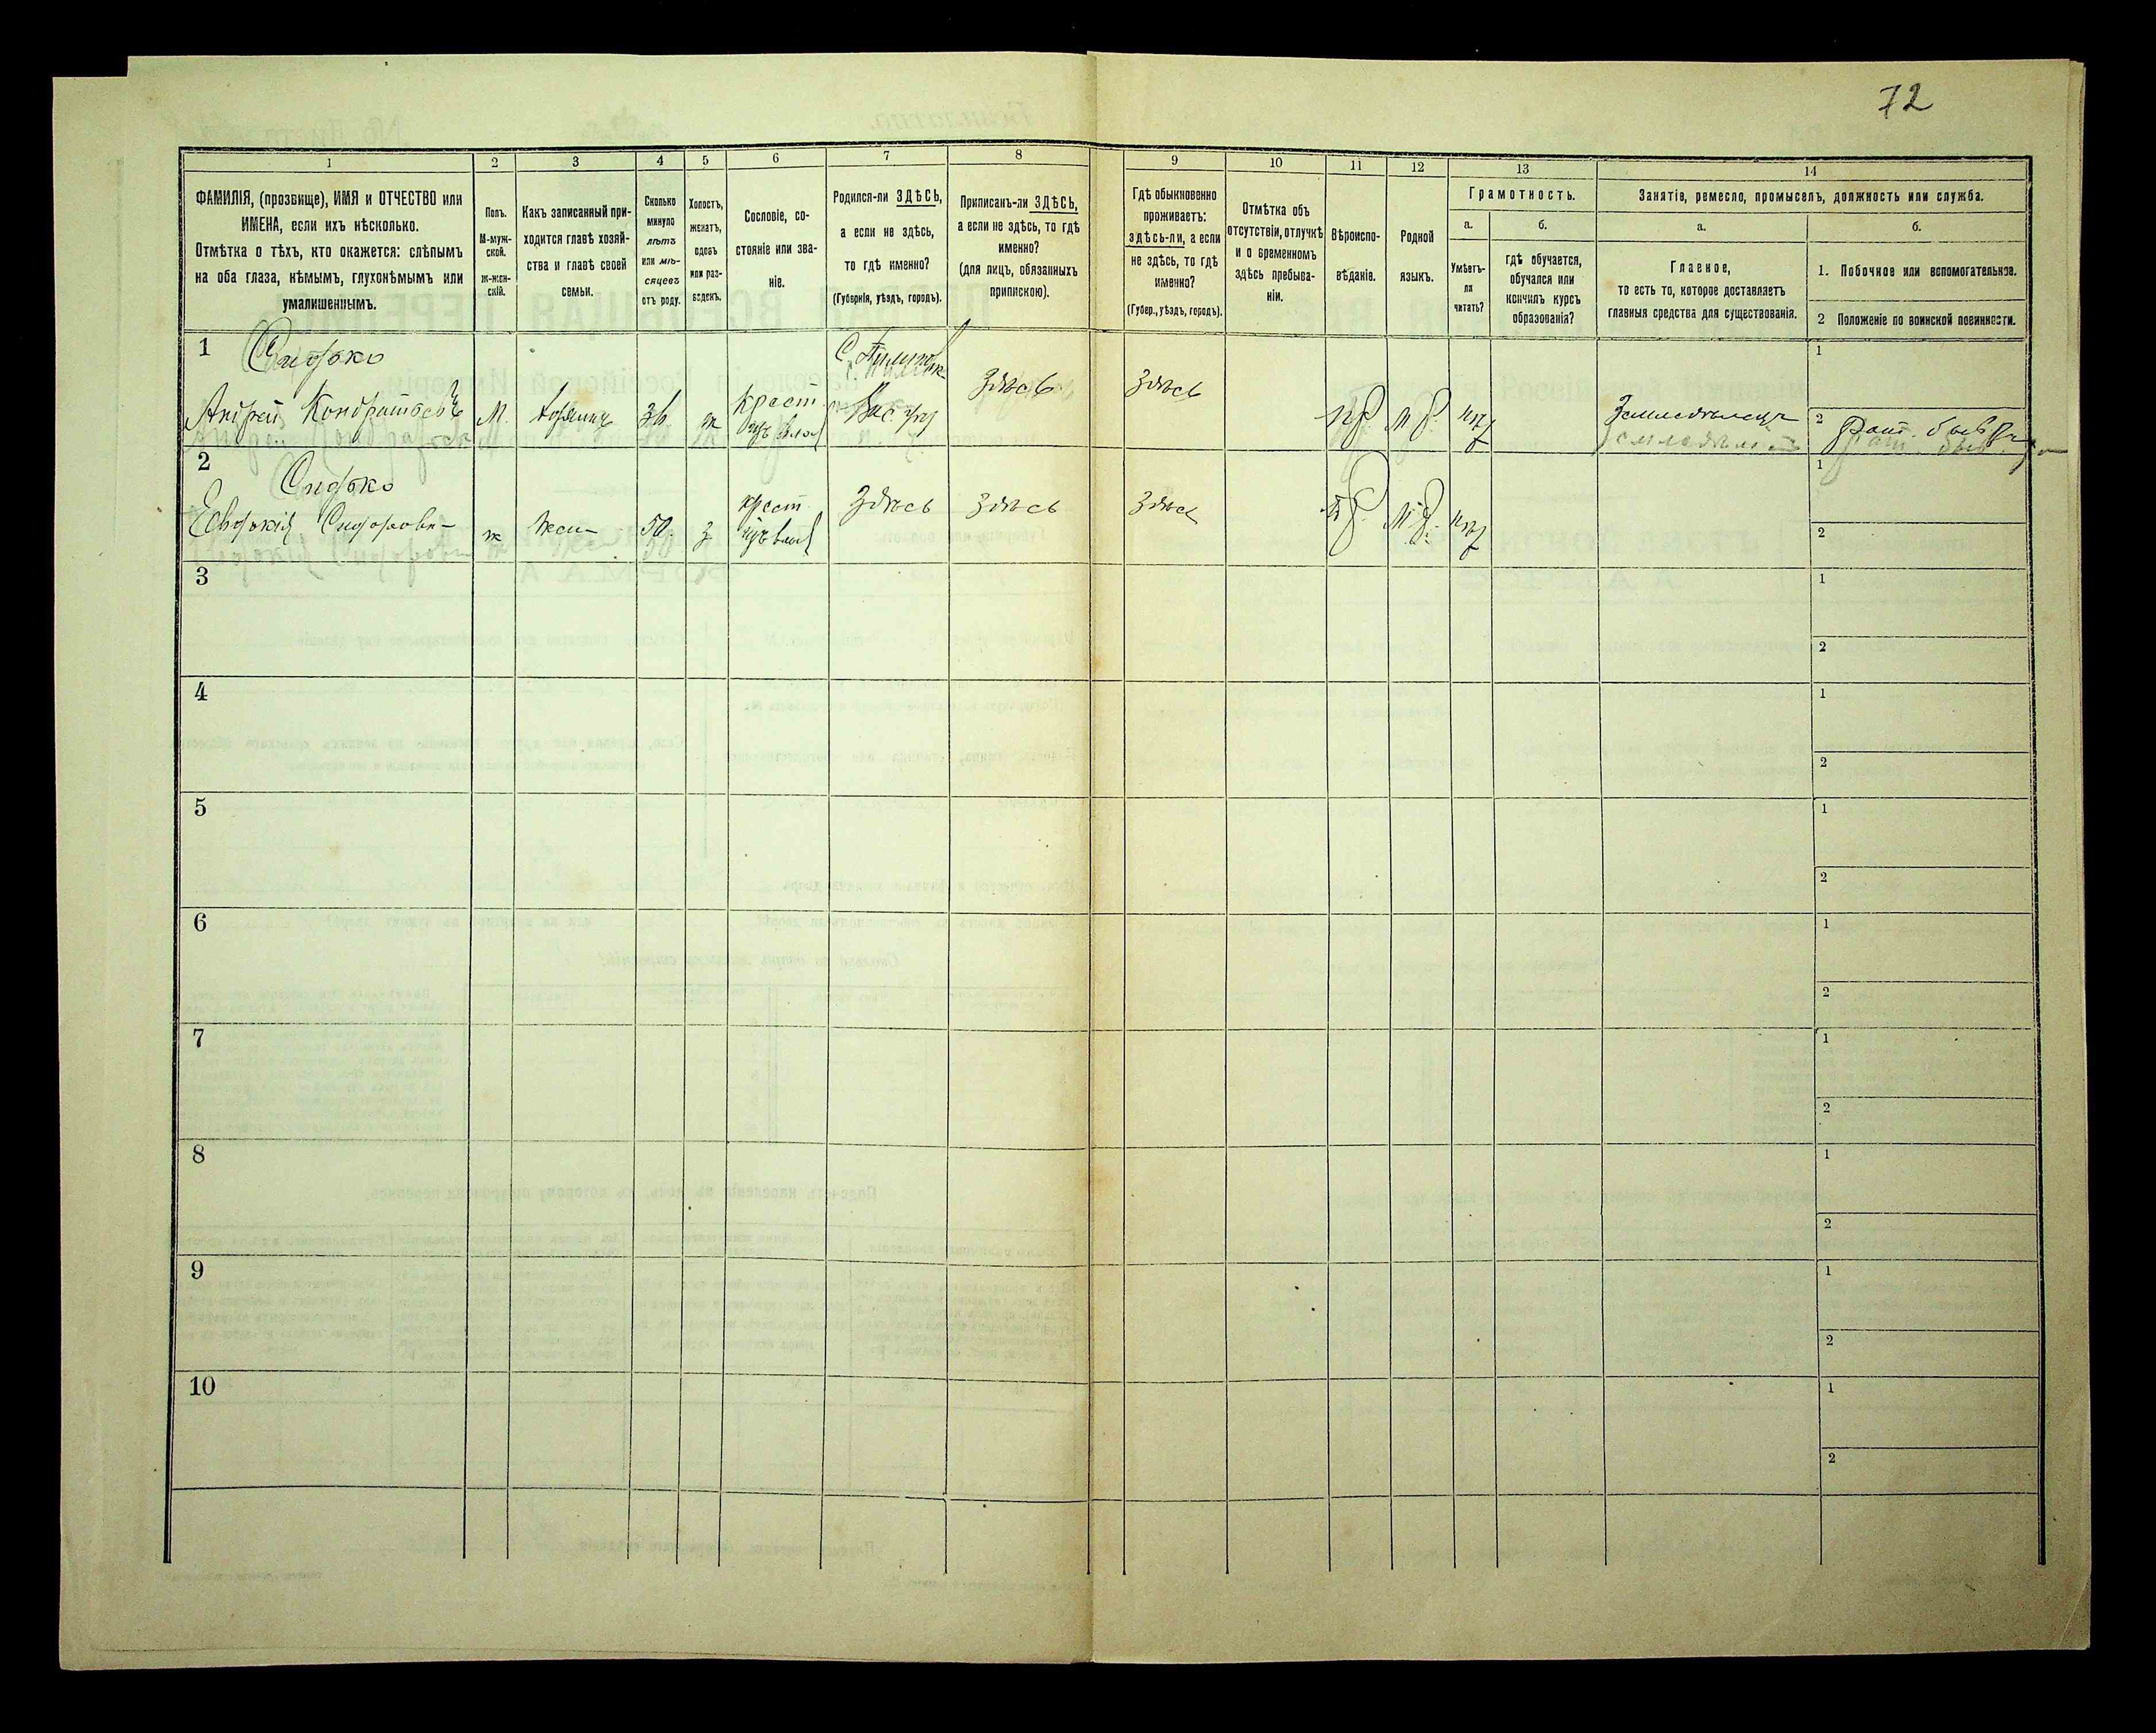 72
1 2 3 4 5 6 7 8 9 10 11 12 13 14
ФАМИЛІЯ, (прозвище), ИМЯ и ОТЧЕСТВО или
ИМЕНА, если ихъ нѣсколько.
Отмѣтка о тѣхъ, кто окажется: слѣпымъ
на оба глаза, нѣмымъ, глухонѣмымъ или
умалишеннымъ.
Полъ.
М-муж-
ской.
ж-жен-
скій.
Какъ записанный при-
ходится главѣ хозяй-
ства и главѣ своей
семьи.
Сколько
минуло
лѣтъ
или мѣ-
сяцевъ
отъ роду.
Холостъ,
женатъ,
вдовъ
или раз-
веденъ.
Сословіе, со-
стояніе или зва-
ніе.
Родился-ли ЗДѢСЬ,
а если не здѣсь,
то гдѣ именно?
(Губернія, уѣздъ, городъ).
Приписанъ-ли ЗДѢСЬ,
а если не здѣсь, то гдѣ
именно?
(для лицъ, обязанныхъ
припискою).
Гдѣ обыкновенно
проживаетъ:
здѣсь-ли, а если
не здѣсь, то гдѣ
именно?
(Губер., уѣздъ, городъ).
Отмѣтка объ
отсутствіи, отлучкѣ
и о временномъ
здѣсь пребыва-
ніи.
Вѣроиспо-
вѣданіе.
Родной
языкъ.
Грамотность.
а.
Умѣетъ-
ли
читать?
б.
гдѣ обучается,
обучался или
кончилъ курсъ
образованія?
Занятіе, ремесло, промыселъ, должность или служба.
а.
Главное,
то есть то, которое доставляетъ
главныя средства для существованія.
б.
1. Побочное или вспомогательное.
2 Положеніе по воинской повинности.
1
Андрей Кондратьевъ
М.
ж
крест
здѣсь
здѣсь
Земледѣлецъ
1
2
2
ж
жен
50
крест
здѣсь
здѣсь
здѣсь
1
2
3
1
2
4
1
2
5
1
2
6
1
2
7
1
2
8
1
2
9
1
2
10
1
2